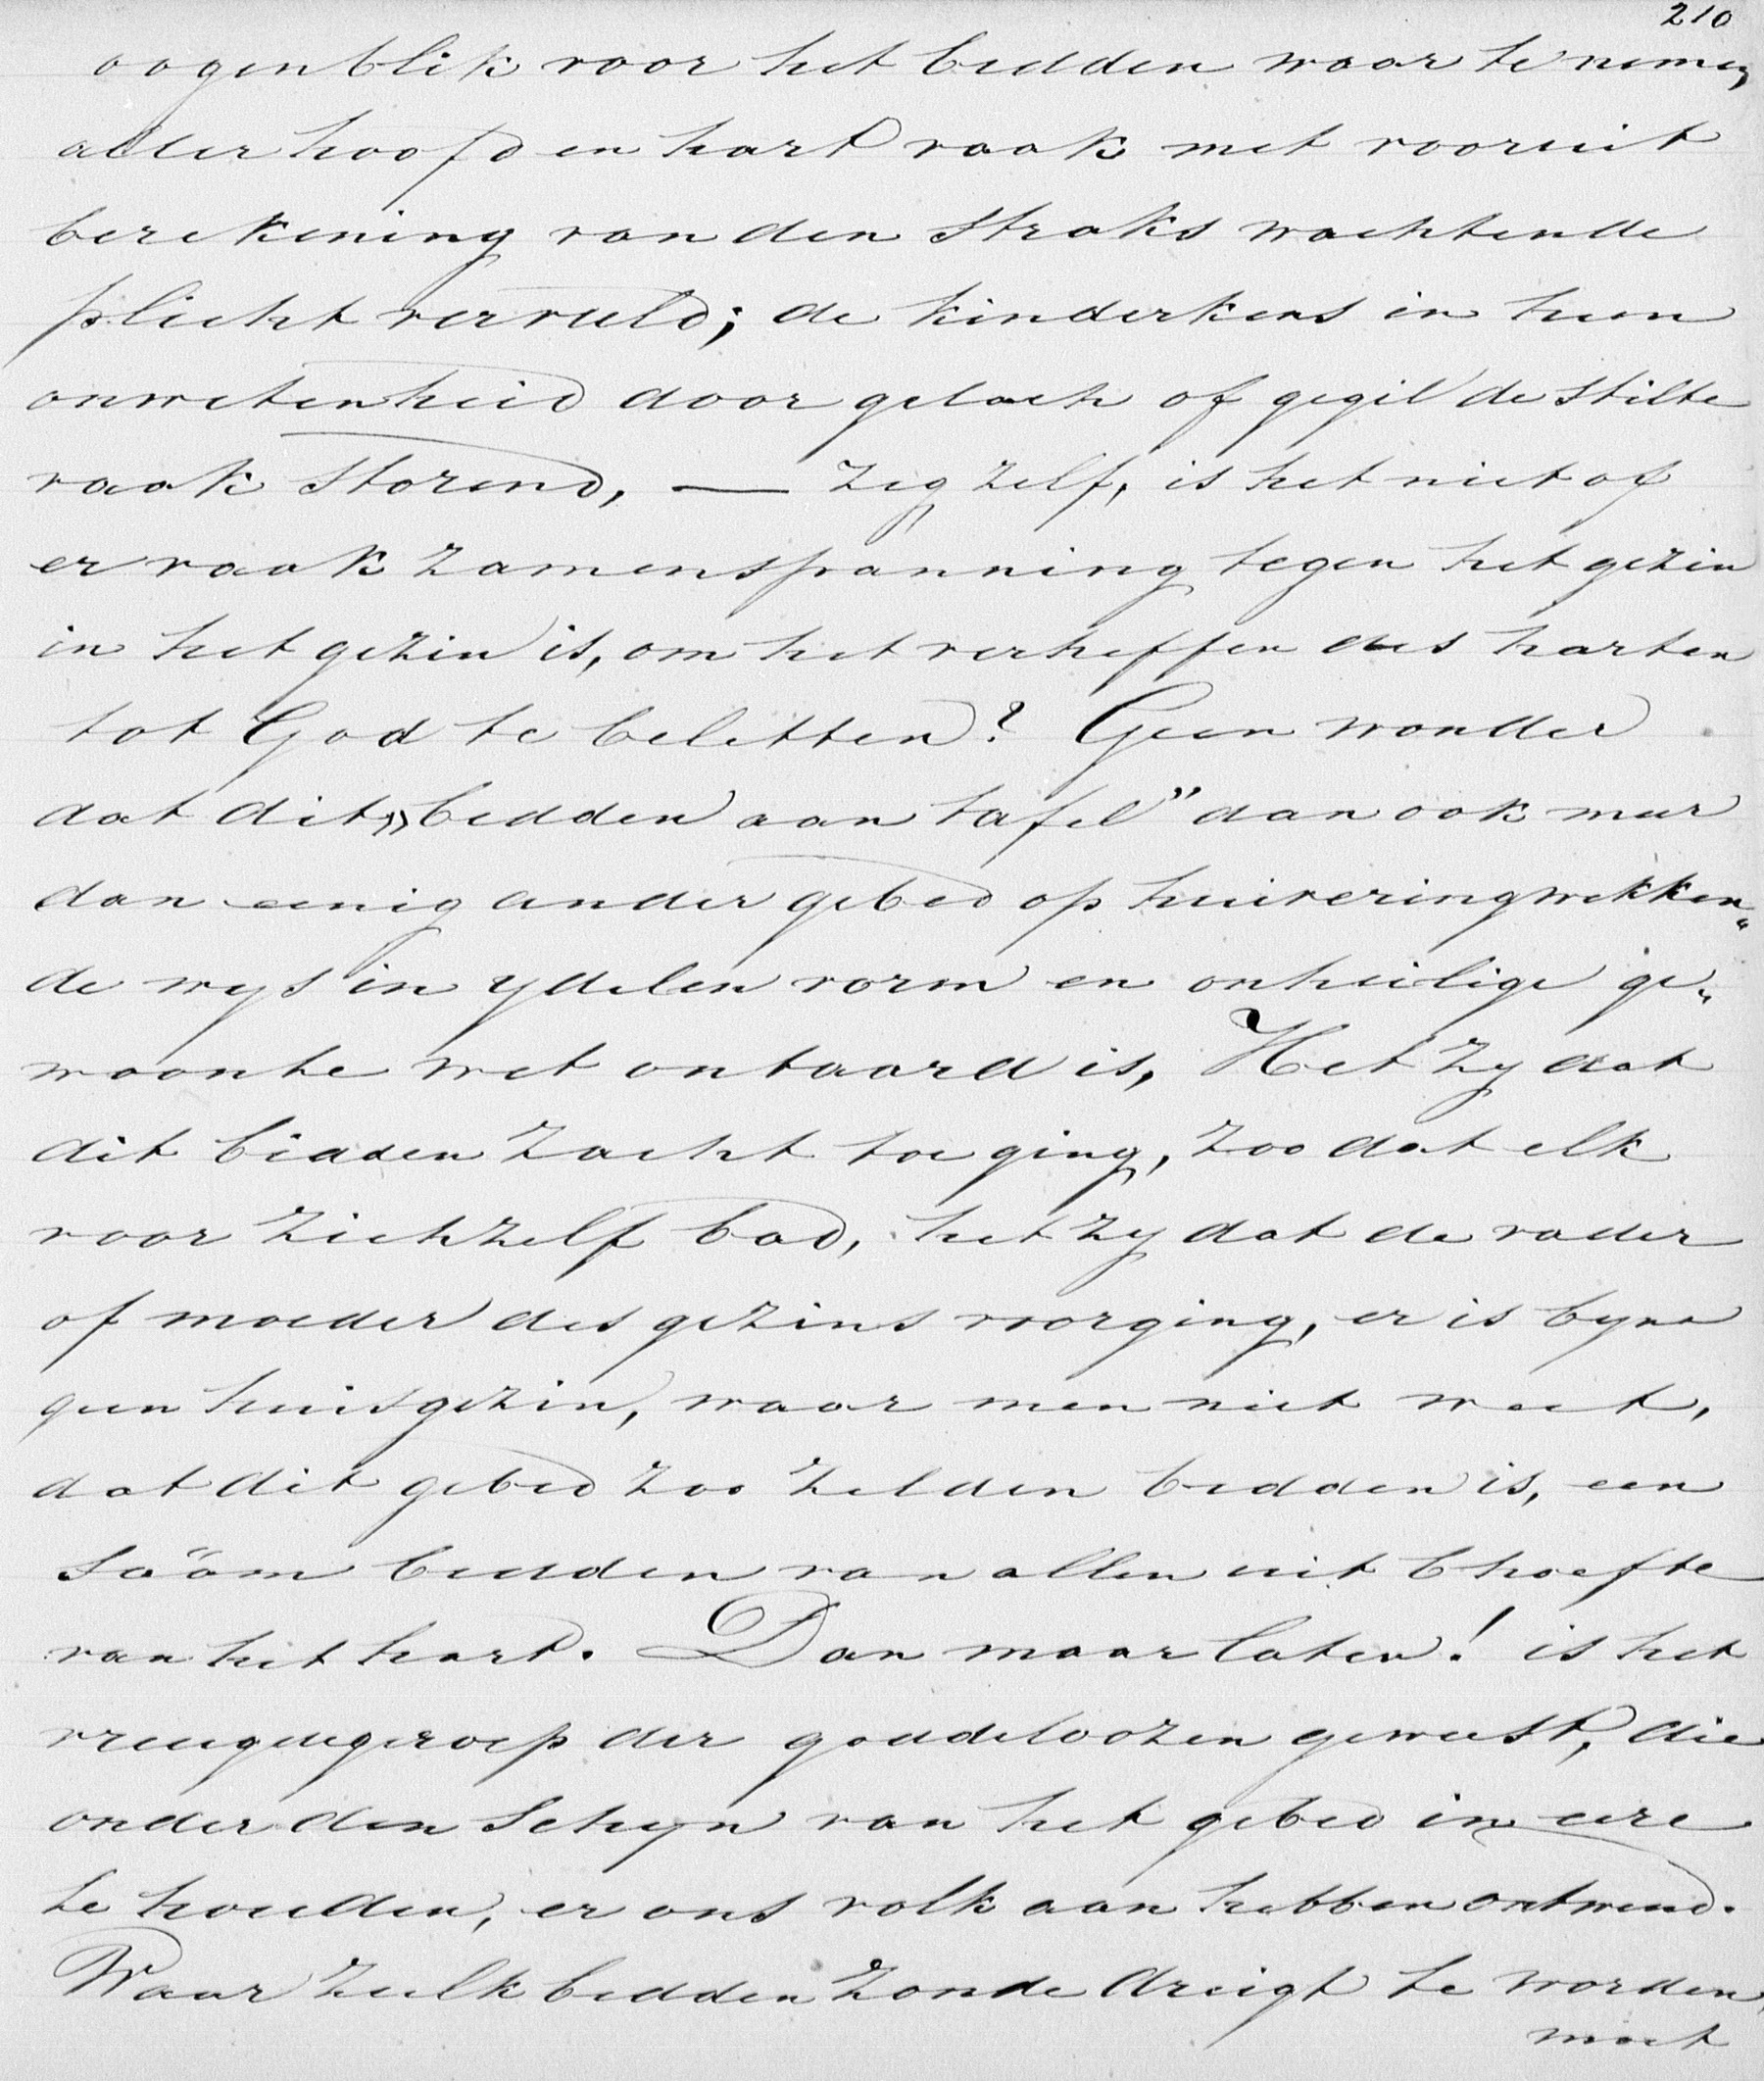 210
oogenblik voor het bidden waar te nemen,
aller hoofd en hart vaak met vooruit
berekening van den straks wachtende
plicht vervuld; de kinderkens in hun
onwetenheid door gelach of gegil de stilte
vaak storend, — zeg zelf, is het niet of
er vaak zamenspanning tegen het gezin
in het gezin is, om het verheffen des harten
tot God te beletten? Geen wonder
dat dit „bidden aan tafel” dan ook meer
dan eenig ander gebed op huiveringwekken„
de wys in ydelen vorm en onheilige ge„
woonte wet ontaard is. Het zy dat
dit bidden zacht toe ging, zoo dat elk
voor zichzelf bad, het zy dat de vader
of moeder des gezins voorging, er is byna
geen huisgezin, waar men niet weet,
dat dit gebed zoo zelden bidden is, een
saâm bidden van allen uit bhoefte
van het hart. Dan maar laten! is het
vreugdegeroep der goddeloozen geweest, die
onder den schyn van het gebed in eere
te houden, er ons volk aan hebben ontwend.
Waar zulk bidden zonde dreigt te worden
moet